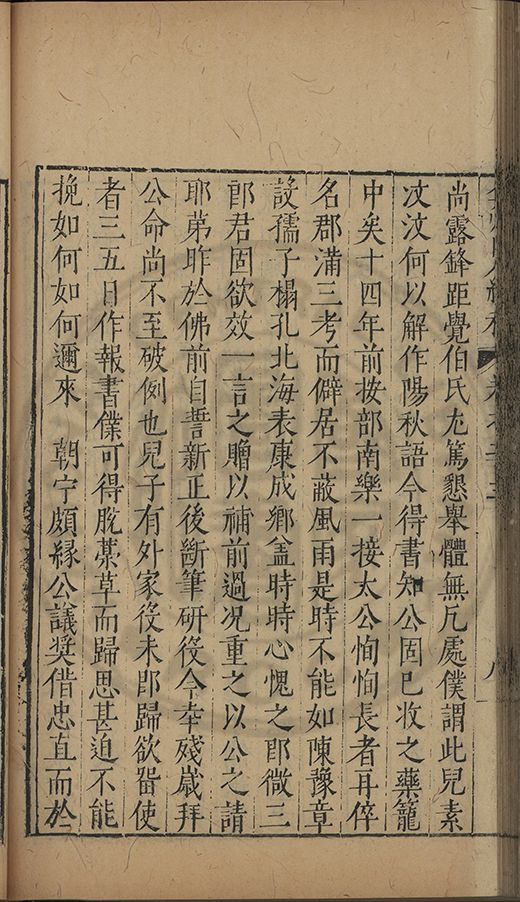 尚露鋒距覺伯氏尤篤懇舉體無凡處僕謂此兒素
汶汶何以解作陽秋語今得書知公固已收之藥籠
中矣十四年前按部南樂一接太公恂恂長者耳倅
名郡滿三考而僻居不蔽風雨是時不能如陳豫章
設孺子榻孔北海表康成鄉盖時時心愧之即微三
郎君固欲效一言之贈以補前過况重之以公之請
耶弟昨於佛前自誓新正後斷筆研役今幸殘歲拜
公命尚不至破例也兒子有外家役未即歸欲畱使
者三五日作報書僕可得脫藁草而歸思甚迫不能
挽如何如何邇來 朝宁頗緣公議奬借忠直而於